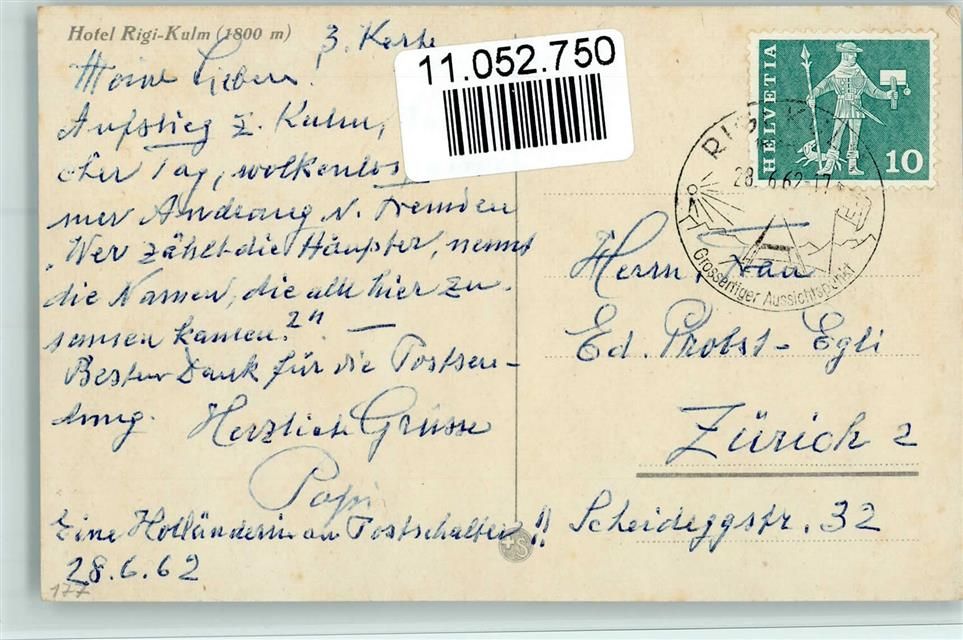 Hotel Rigi-Kulm (1800 m)
3. Karte
Meine Lieben!
Aufstieg z. Kulm,
cher Tag, wolkenlos
mer Andrang v. Fremden
"Wer zählt die Häupter, nennt
die Namen, die alle hier zu-
samen kamen?" —
Besten Dank für die Postsen-
dung.
Herzliche Grüsse
Papi
Eine Holländerin am Postschalter!!
28.6.62
177
11.052.750
HELVETIA
10
RIGI
28. 6.62-17
Grossartiger Aussichtspunkt
Herrn, Frau
Ed. Probst-Egli
Zürich 2
Scheideggstr. 32